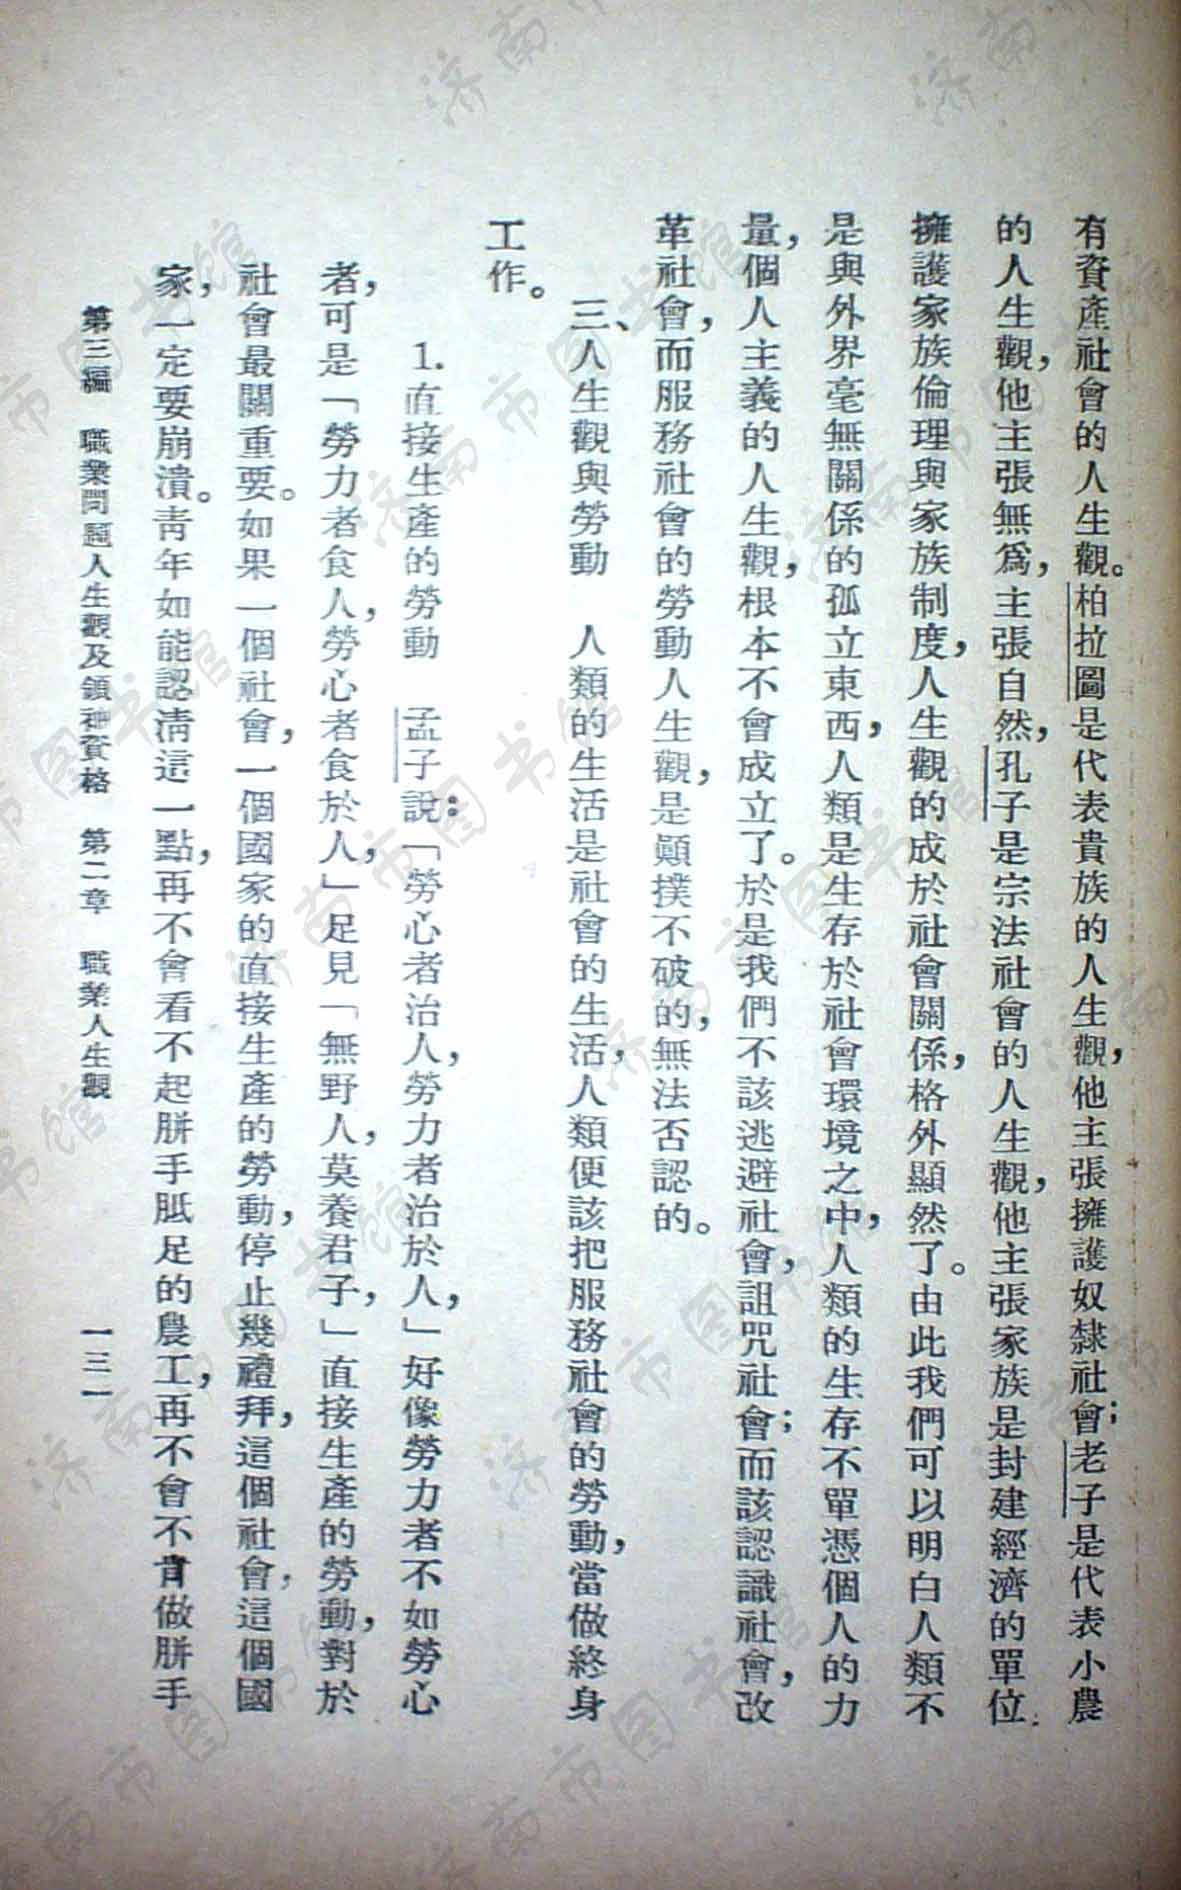 有資產社會的人生觀。柏拉圖是代表貴族的人生觀，他主張擁護奴隸社會；老子是代表小農
的人生觀，他主張無爲，主張自然，孔子是宗法社會的人生觀，他主張家族是封建經濟的單位
擁護家族倫理與家族制度，人生觀的成於社會關係，格外顯然了。由此我們可以明白人類不
是與外界毫無關係的孤立東西，人類是生存於社會環境之中，人類的生存不單憑個人的力
量，個人主義的人生觀，根本不會成立了。於是我們不該逃避社會，詛咒社會；而該認識社會，改
革社會，而服務社會的勞動人生觀，是顚撲不破的，無法否認的。
三、人生觀與勞動　人類的生活是社會的生活，人類便該把服務社會的勞動，當做終身
工作。
1.直接生產的勞動　孟子說：「勞心者治人，勞力者治於人，」好像勞力者不如勞心
者，可是「勞力者食人，勞心者食於人，」足見「無野人，莫養君子，」直接生產的勞動，對於
社會最關重要。如果一個社會，一個國家的直接生產的勞動，停止幾禮拜，這個社會，這個國
家，一定要崩潰。靑年如能認淸這一點，再不會看不起胼手胝足的農工，再不會不肯做胼手
第三編　職業問題人生觀及領神資格　第二章　職業人生觀　一三一
济南市图书馆